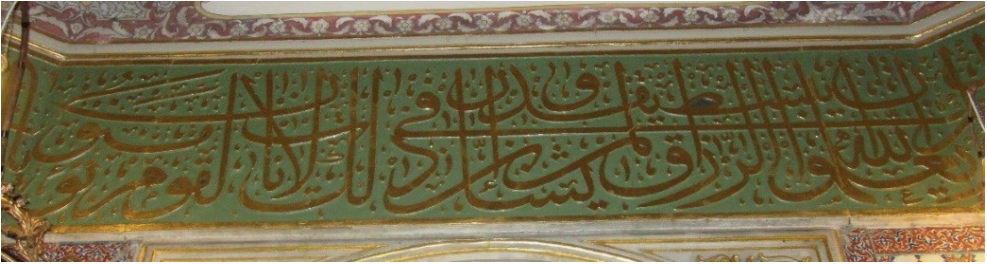 يعلموا أن الله يبسط الرزق لمن يشاء ويقدر إن في ذلك لآيات لقوم يؤمنون